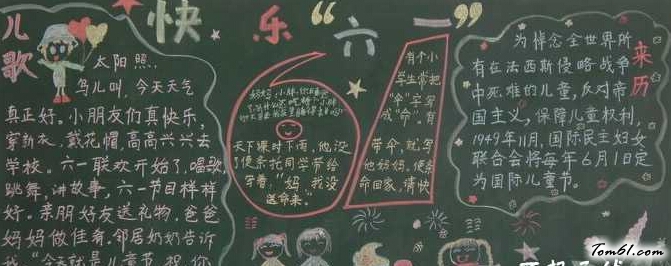 快乐“六一”
儿歌
太阳照,
鸟儿叫,今天天气
真正好。小朋友们真快乐,
穿新衣、戴花帽,高高兴兴去
学校。六一联欢开始了,唱歌
跳舞、讲故事,六一节目样样
好。亲朋好友送礼物,爸爸
妈妈做佳肴。邻居奶奶告诉
我“今天就是儿童节,祝你
61
天下课时下雨,他没
了便条托同学带给
写着:“妈,我没
送命来。”
有个小
学生常把
“伞”字写
成“命”,有
带伞,就写
他妈妈,便条
命回家,请快
来历
为悼念全世界所
有在法西斯侵略战争
中死难的儿童,反对帝
国主义,保障儿童权利,
1949年11月,国际民主妇女
联合会将每年6月1日定
为国际儿童节。
Tom61.com